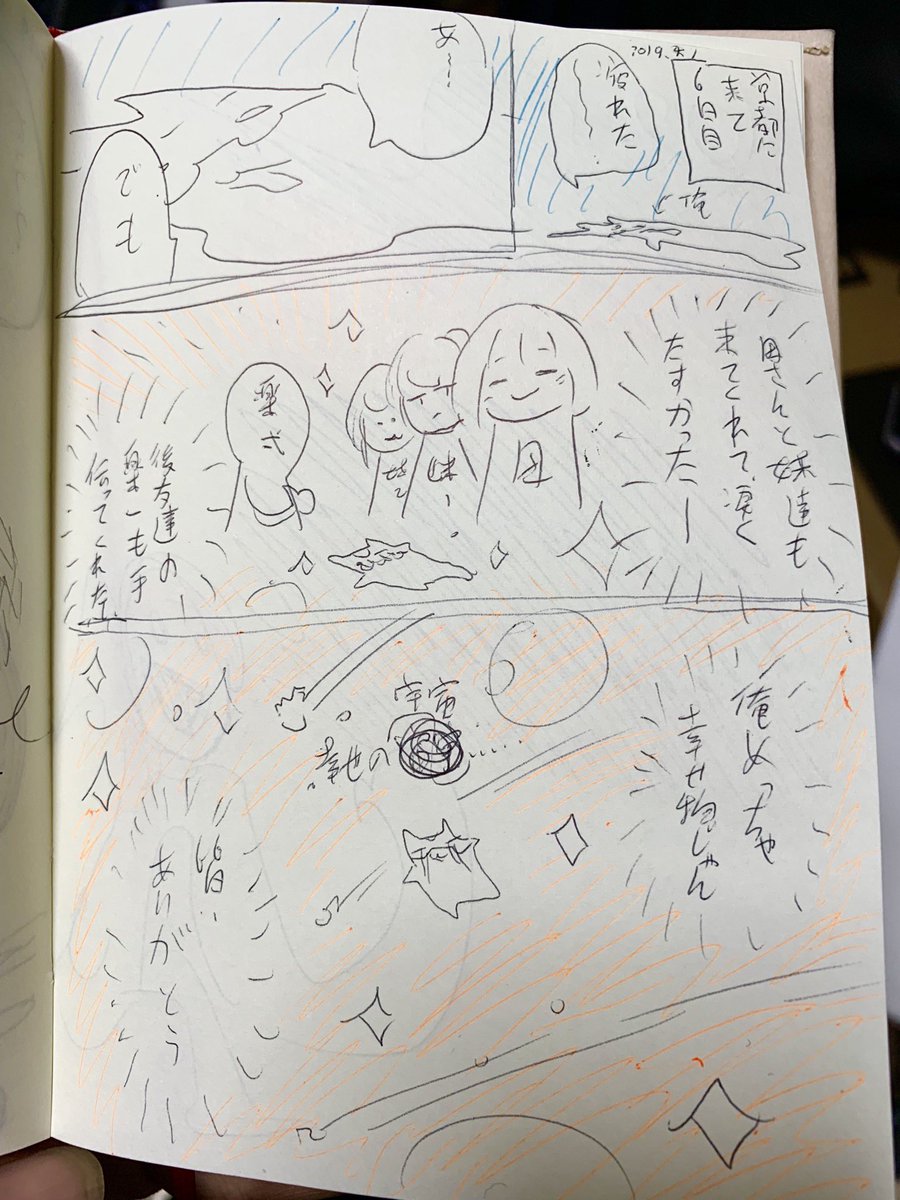 2019.5.1
京都に
来て
6日目
疲れた
俺
あ〜
でも
母さんと妹達も
来てくれて、凄く
たすかったー
母
妹1
妹2
楽弌
後友達の
楽一も手
伝ってくれた
俺めっちゃ
幸せ物じゃんー
宇宙
幸せの
皆、
ありがとう